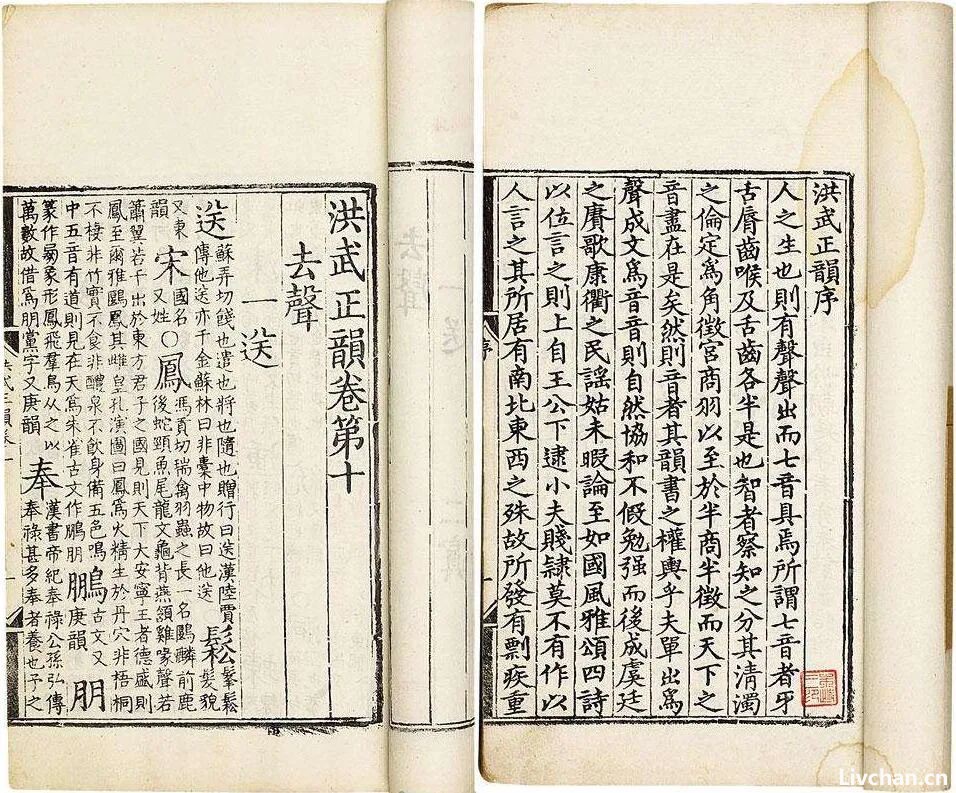 洪武正韻序
人之生也則有聲聲出而七音具焉所謂七音者牙
舌脣齒喉及舌齒各半是也智者察知之分其清濁
之倫定爲角徵宮商羽以至於半商半徵而天下之
音盡在是矣然則音者其韻書之權輿乎夫單出爲
聲成文爲音音則自然協和不假勉强而後成虞廷
之賡歌康衢之民謠姑未暇論至如國風雅頌四詩
以位言之則上自王公下逮小夫賤隸莫不有作以
人言之其所居有南北東西之殊故所發有剽疾重
序
洪武正韻卷第十
去聲
一送
送蘇弄切餞也遣也將也隨也贈行曰送漢陸賈
傳他送亦千金蘇林曰非橐中物故曰他送鬆鬆髮貌
又東韻宋國名又姓○鳳馮貢切瑞禽羽蟲之長一名鶠麟前鹿
後蛇頸魚尾龍文龜背燕頷雞喙聲若
簫翼若干出於東方君子之國見則天下大安寧王者德盛則
鳳至爾雅鶠鳳其雌皇孔演圖曰鳳爲火精生於丹穴非梧桐
不棲非竹實不食非醴泉不飲身備五色鳴
中五音有道則見在天爲朱雀古文作鵬朋鵬古文又庚韻朋
篆作象形鳳飛羣鳥从之以
萬數故借爲朋黨字又庚韻奉漢書帝紀奉祿公孫弘傳
奉祿甚多奉者養也子之
Livchan.cn